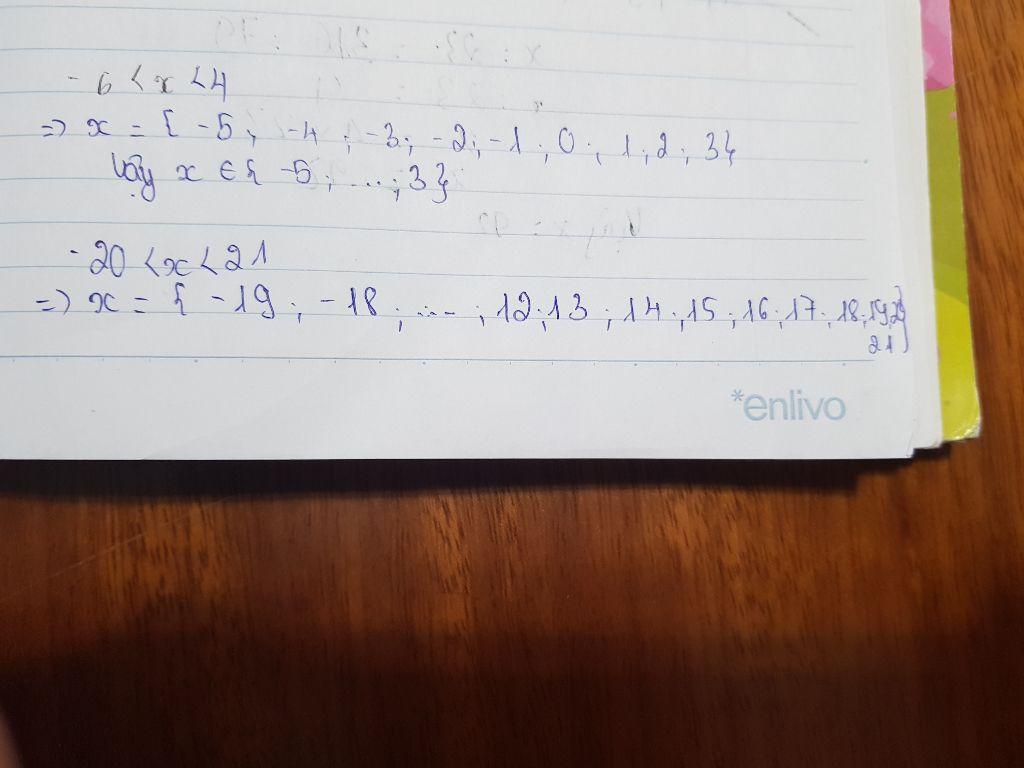 - 6 < x < 4
=> x = { -5 ; -4 ; -3 ; -2 ; -1 ; 0 ; 1 ; 2 ; 3 }
Vậy x ∈ { -5 ; ... ; 3 }
- 20 < x < 21
=> x = { -19 ; -18 ; ... ; 12 ; 13 ; 14 ; 15 ; 16 ; 17 ; 18 ; 19 ; 20
21 }
*enlivo